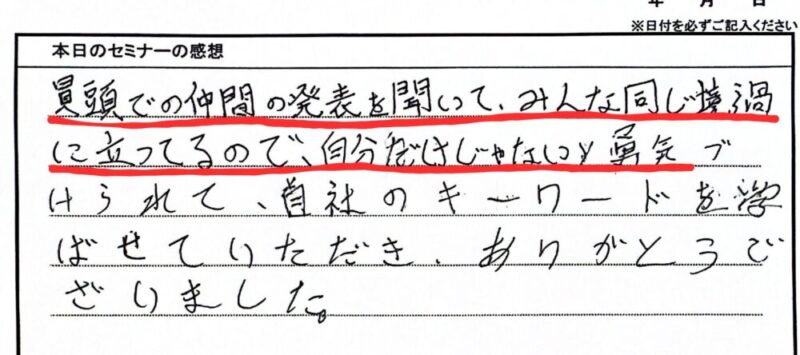 年 月 日
※日付を必ずご記入ください
本日のセミナーの感想
冒頭での仲間の発表を聞いて、みんな同じ境渦
に立ってるので、自分だけじゃないと勇気づ
けられて、自社のキーワードを学
ばせていただき、ありがとうご
ざいました。